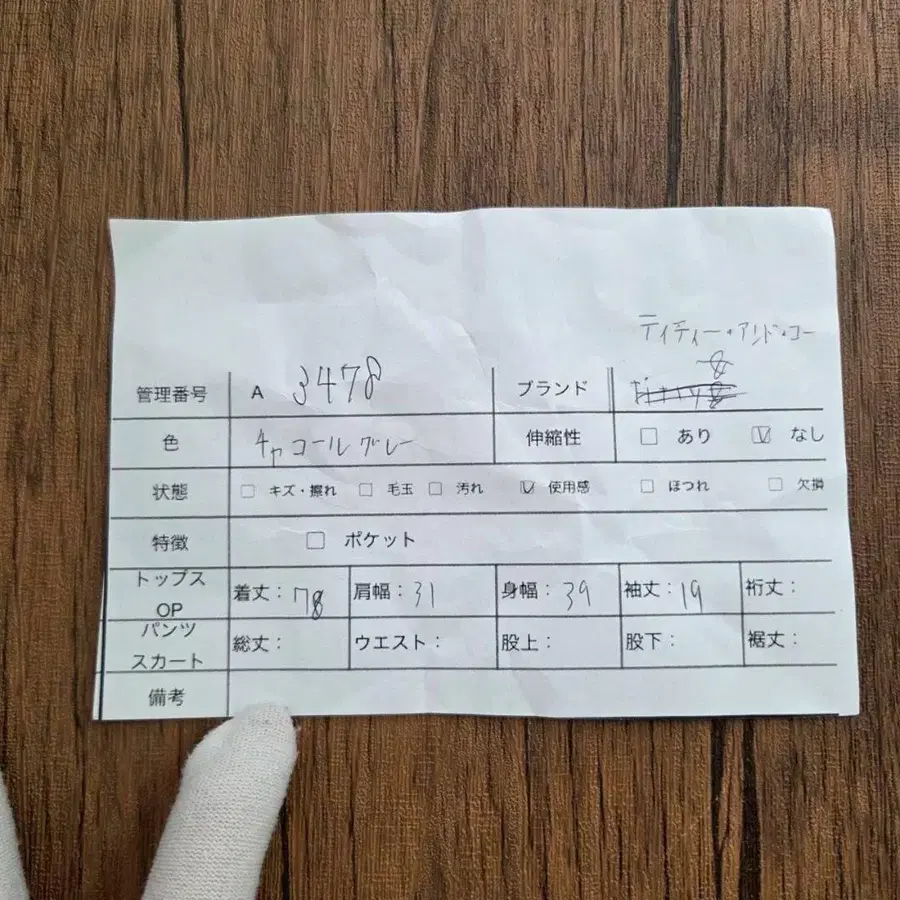 ティティー・アンド・コー
管理番号 A 3478 ブランド &
色 チャコールグレー 伸縮性 ☐ あり ☑ なし
状態 ☐ キズ・擦れ ☐ 毛玉 ☐ 汚れ ☑ 使用感 ☐ ほつれ ☐ 欠損
特徴 ☐ ポケット
トップス OP 着丈：78 肩幅：31 身幅：39 袖丈：19 裄丈：
パンツ スカート 総丈： ウエスト： 股上： 股下： 裾丈：
備考